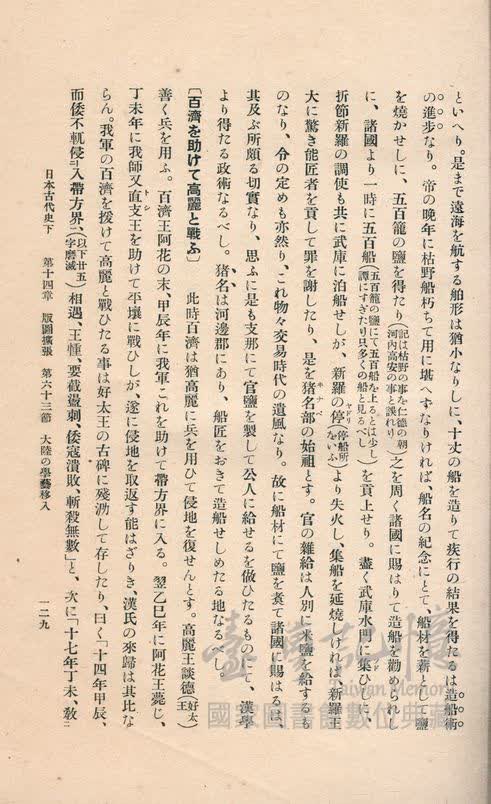 といへり。是まで遠海を航する舶形は猶小なりしに、十丈の船を造りて疾行の結果を得たるは造船術
の進步なり。帝の晚年に枯野船朽ちて用に堪へずなりければ、船名の紀念にとて、船材を薪として鹽
を燒かせしに、五百籠の鹽を得たり(記は枯野の事を仁德の朝河內高安の事と誤れり)之を周く諸國に賜はりて造船を勸められし
に、諸國より一時に五百船(五百籠の鹽にて五百船を上るとは少し譚にすぎたり只多くの船と見るべし)を貢上せり。盡く武庫水門に集ひしに、
折節新羅の調使も共に武庫に泊船せしが、新羅の停(停船所をいふ)より失火し、集船を延燒しければ、新羅王
大に驚き能匠者を貢して罪を謝したり、是を猪名部の始祖とす。官の雜給は人別に米鹽を給するも
のなり、令の定めも亦然り、これ物々交易時代の遺風なり。故に船材にて鹽を煑て諸國に賜はるは、
其及ぶ所頗る切實なり、思ふに是も支那にて官鹽を製して公人に給せるを倣ひたるものにて、漢學
より得たる政術なるべし。猪名は河邊郡にあり、船匠をおきて造船せしめたる地なるべし。
〔百濟を助けて高麗と戰ふ〕 此時百濟は猶高麗に兵を用ひて侵地を復せんとす。高麗王談德(好太王)
善く兵を用ふ。百濟王阿花の末、甲辰年に我軍これを助けて帶方界に入る。翌乙巳年に阿花王薨じ、
丁未年に我師又直支王を助けて平壤に戰ひしが、遂に侵地を取返す能はざりき、漢氏の來歸は其比な
らん。我軍の百濟を援けて高麗と戰ひたる事は好太王の古碑に殘泐して存したり、曰く「十四年甲辰、
而倭不軌侵入帶方界、(以下廿五字磨滅)相遇、王幢、要截盪刺、倭寇潰敗、斬殺無數」と、次に「十七年丁未、敎
日本古代史下 第十四章 版圖擴張 第六十三節 大陸の學藝移入 一二九
臺灣記憶
Taiwan Memory
國家圖書館數位典藏